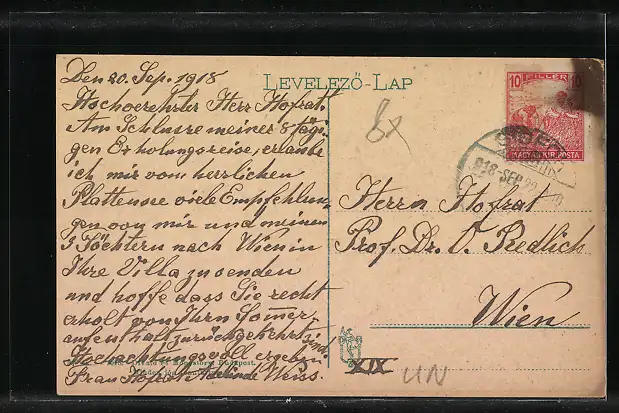 Den 20. Sep. 1918
LEVELEZŐ-LAP
Hochverehrter Herr Hofrat.
Am Schlusse meiner 8 tägi-
gen Erholungsreise, erlaube
ich mir vom herrlichen
Plattensee viele Empfehlun-
gen von mir und meinen
3 Töchtern nach Wien in
Ihre Villa zu senden
und hoffe dass Sie recht
erholt von Ihrn Somer-
aufenthalt zurückgekehrt sind
Hochachtungsvoll ergebn
Frau Hofrat Adelinde Weiss.
10 FILLÉR 10
MAGYAR KIR. POSTA
918 SEP 22
Herrn Hofrat
Prof. Dr. O. Redlich
Wien
XIX
UN